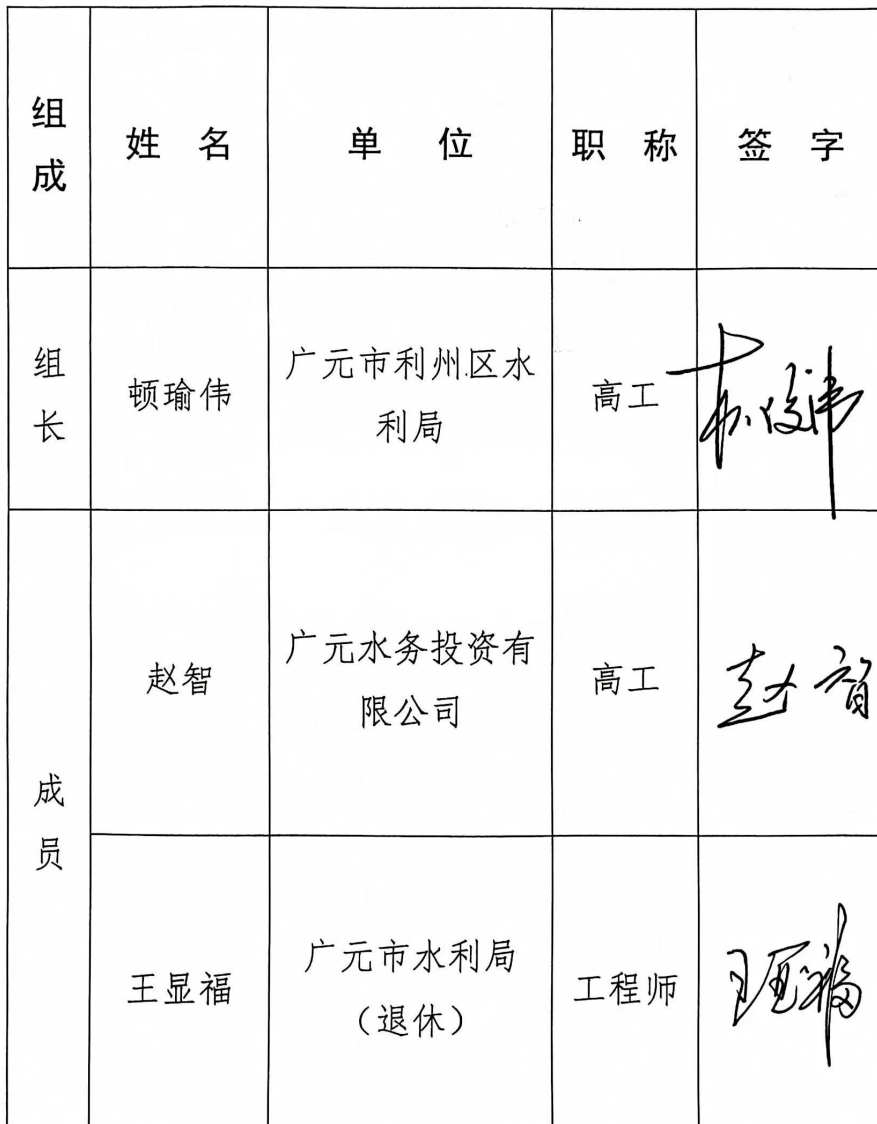 组成 姓名 单位 职称 签字
组长 顿瑜伟 广元市利州区水利局 高工
成员 赵智 广元水务投资有限公司 高工 赵智
王显福 广元市水利局(退休) 工程师 王显福